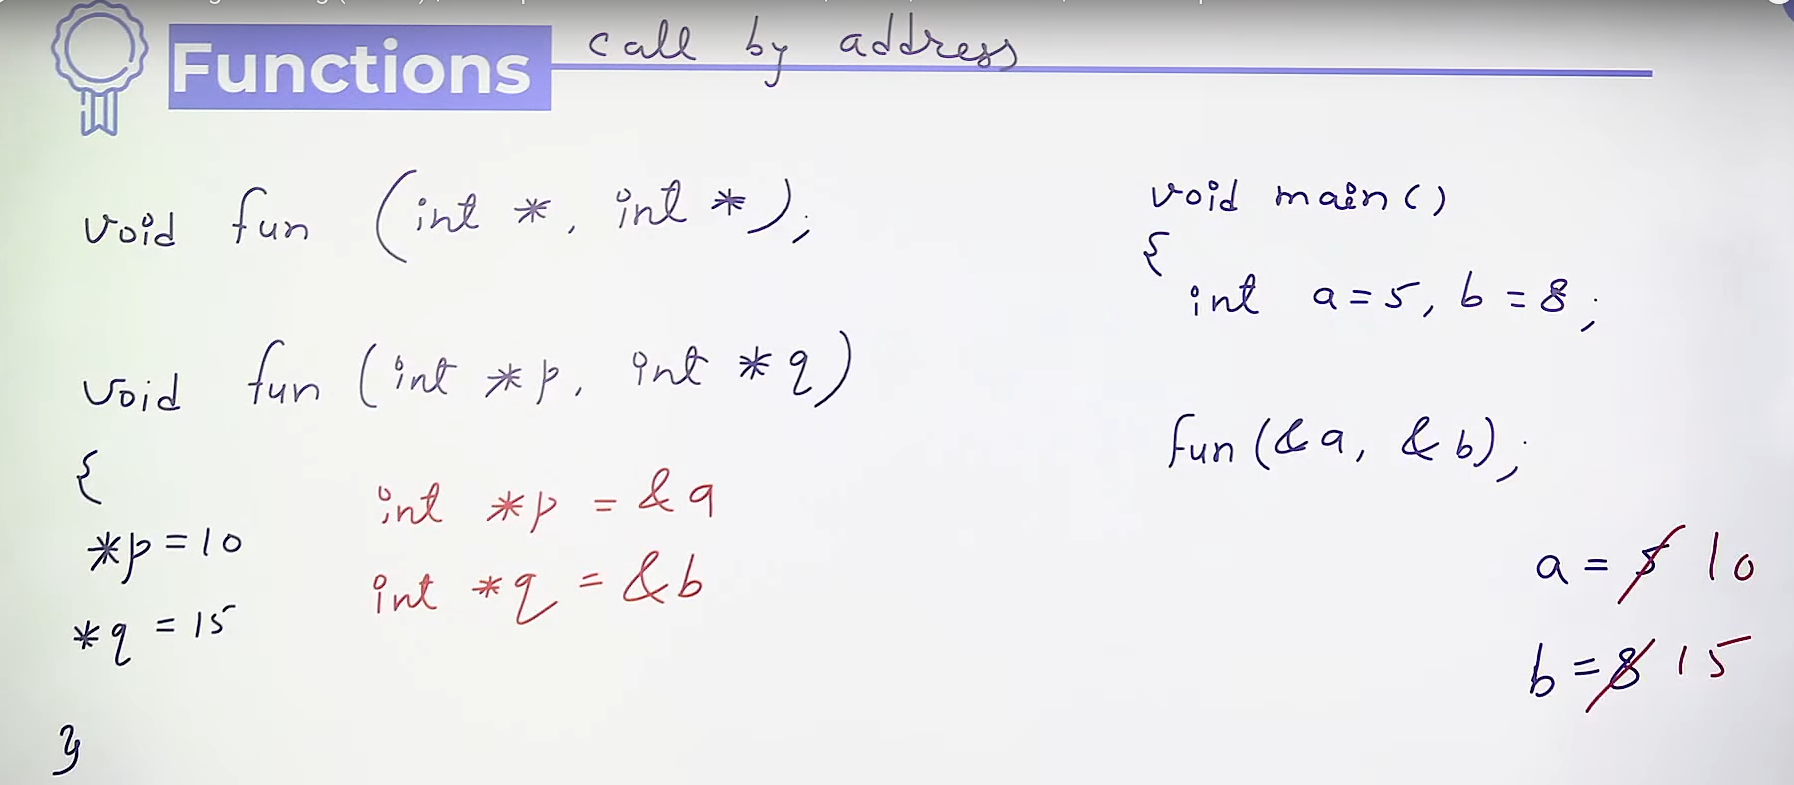 Functions call by address
void fun (int *, int *);
void fun (int *p, int *q)
{
*p=10
*q = 15
}
int *p = &a
int *q = &b
void main()
{
int a=5, b=8;
fun(&a, &b);
a = 5 10
b = 8 15